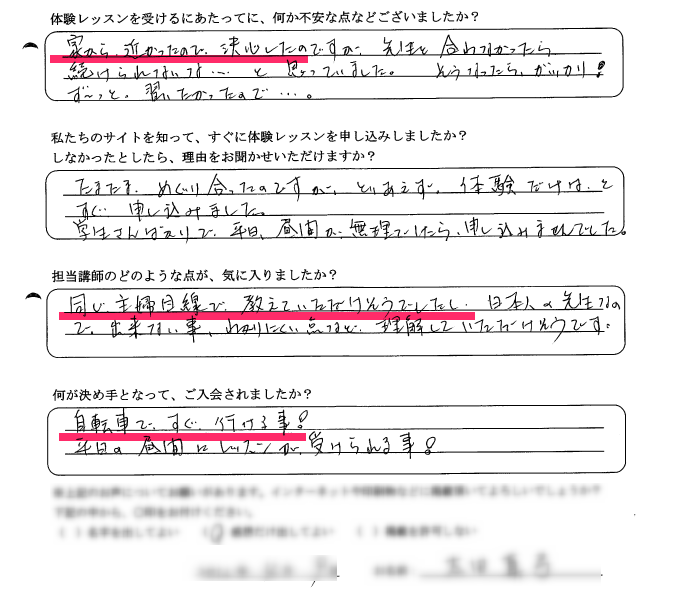 体験レッスンを受けるにあたってに、何か不安な点などございましたか？
家から、近かったので、決心したのですが、先生と合わなかったら
続けられないな…と思っていました。そうなったら、ガッカリ！
ず〜っと、習いたかったので…。
私たちのサイトを知って、すぐに体験レッスンを申し込みしましたか？
しなかったとしたら、理由をお聞かせいただけますか？
たまたま、めぐり合ったのですが、とりあえず、体験だけは、と
すぐ申し込みました。
学生さんばかりで、平日、昼間が、無理でしたら、申し込みませんでした。
担当講師のどのような点が、気に入りましたか？
同じ、主婦目線で、教えていただけそうでしたし、日本人の先生なの
で、出来ない事、わかりにくい点など、理解していただけそうです。
何が決め手となって、ご入会されましたか？
自転車で、すぐ、行ける事！
平日の昼間にレッスンが、受けられる事！